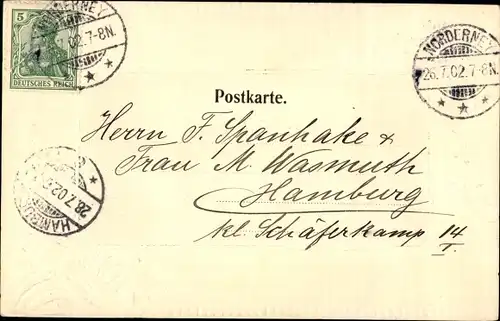 5
DEUTSCHES REICH
NORDERNEY
02.7-8N.
NORDERNEY
26.7.02.7-8N.
Postkarte.
Herrn F. Spanhake &
Frau M. Wasmuth
Hamburg
kl. Schäferkamp 14
I.
HAMBURG
28.7.02